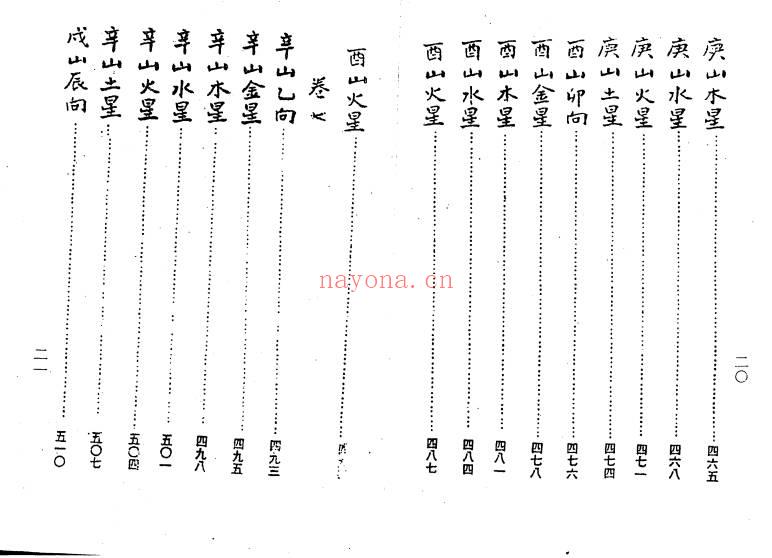 庚山木星 四六五
庚山水星 四六八
庚山火星 四七一
庚山土星 四七四
酉山卯向 四七六
酉山金星 四七八
酉山木星 四八一
酉山水星 四八四
酉山火星 四八七
二〇
酉山火星
卷七
辛山乙向 四九三
辛山金星 四九五
辛山木星 四九八
辛山水星 五〇一
辛山火星 五〇四
辛山土星 五〇七
戌山辰向 五一〇
二一
nayona.cn